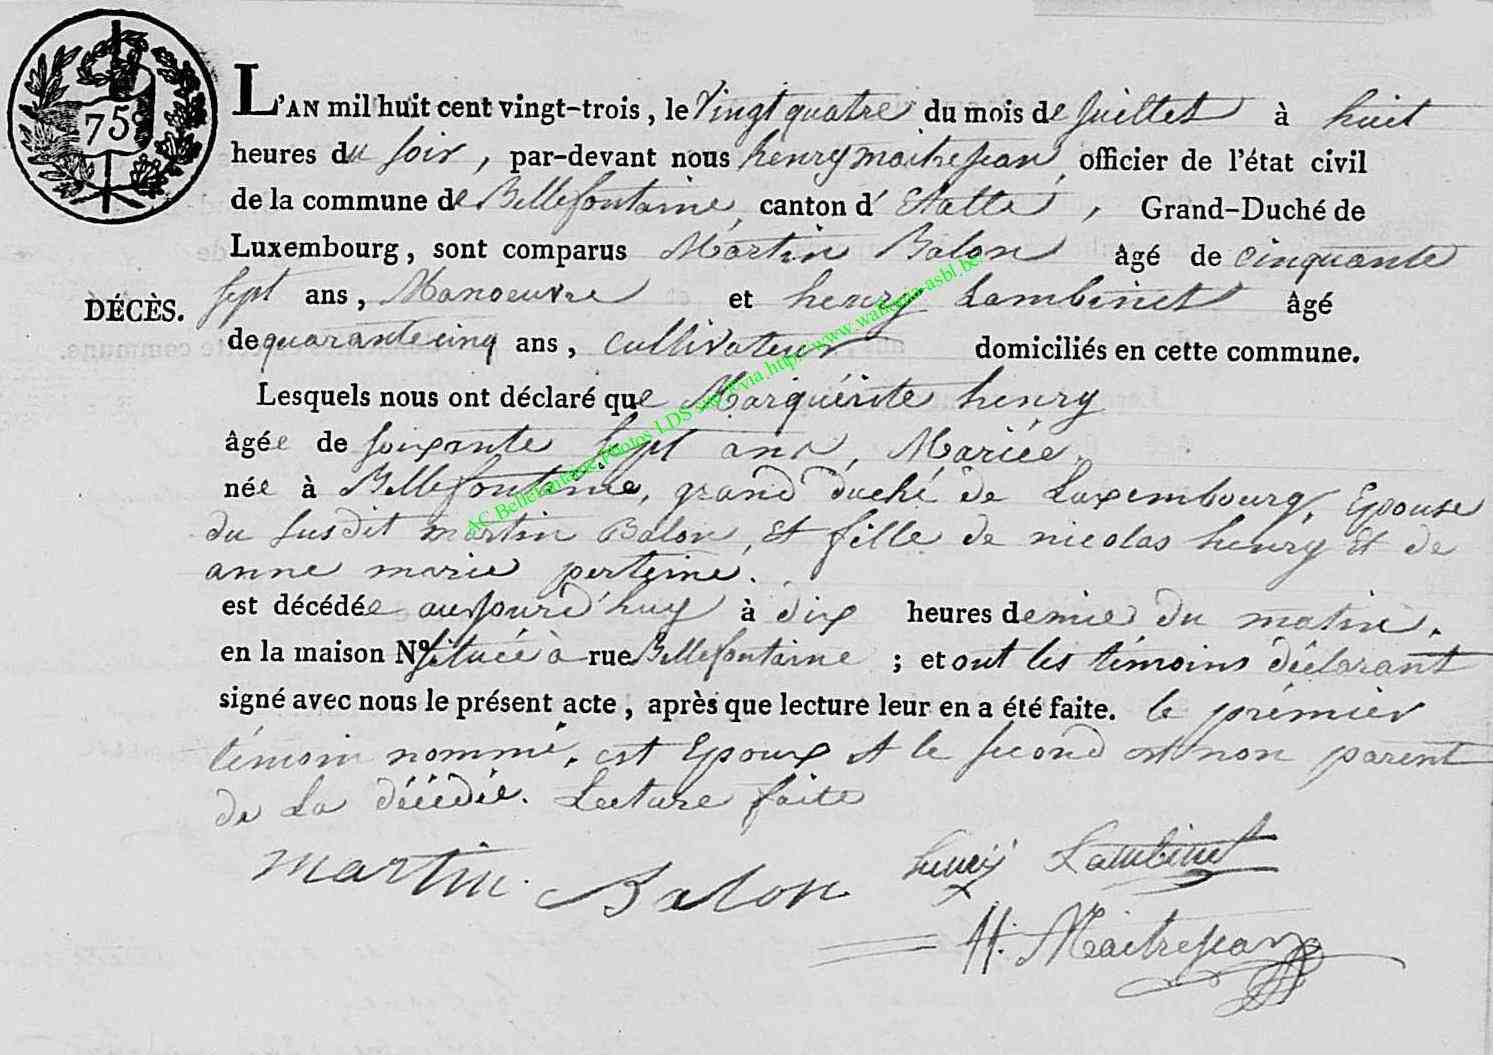 75c
L'AN mil huit cent vingt-trois, le Vingt quatre du mois de Juillet à huit
heures du soir, par-devant nous henry maitrejean, officier de l'état civil
de la commune de Bellefontaine, canton d' Etalle, Grand-Duché de
Luxembourg, sont comparus Martin Balon âgé de cinquante
DÉCÈS.
sept ans, Manoeuvre et henry Lambinet âgé
de quarante cinq ans, cultivateur domiciliés en cette commune.
Lesquels nous ont déclaré que Marguérite henry
âgée de soixante sept ans, Mariée,
née à Bellefontaine, grand duché de Luxembourg, Epouse
du susdit martin Balon, et fille de nicolas henry et de
anne marie perteine.
est décédée aujourd'huy à dix heures demie du matin.
en la maison N° située à rue Bellefontaine ; et ont les témoins déclarant
signé avec nous le présent acte, après que lecture leur en a été faite. le prémier
témoin nommé, est Epoux et le second est non parent
de La décédée. Lecture faite
martin Balon henri Lambinet
H. Maitrejean
AC Bellefontaine Photos LDS via http://www.wallonia-asbl.be